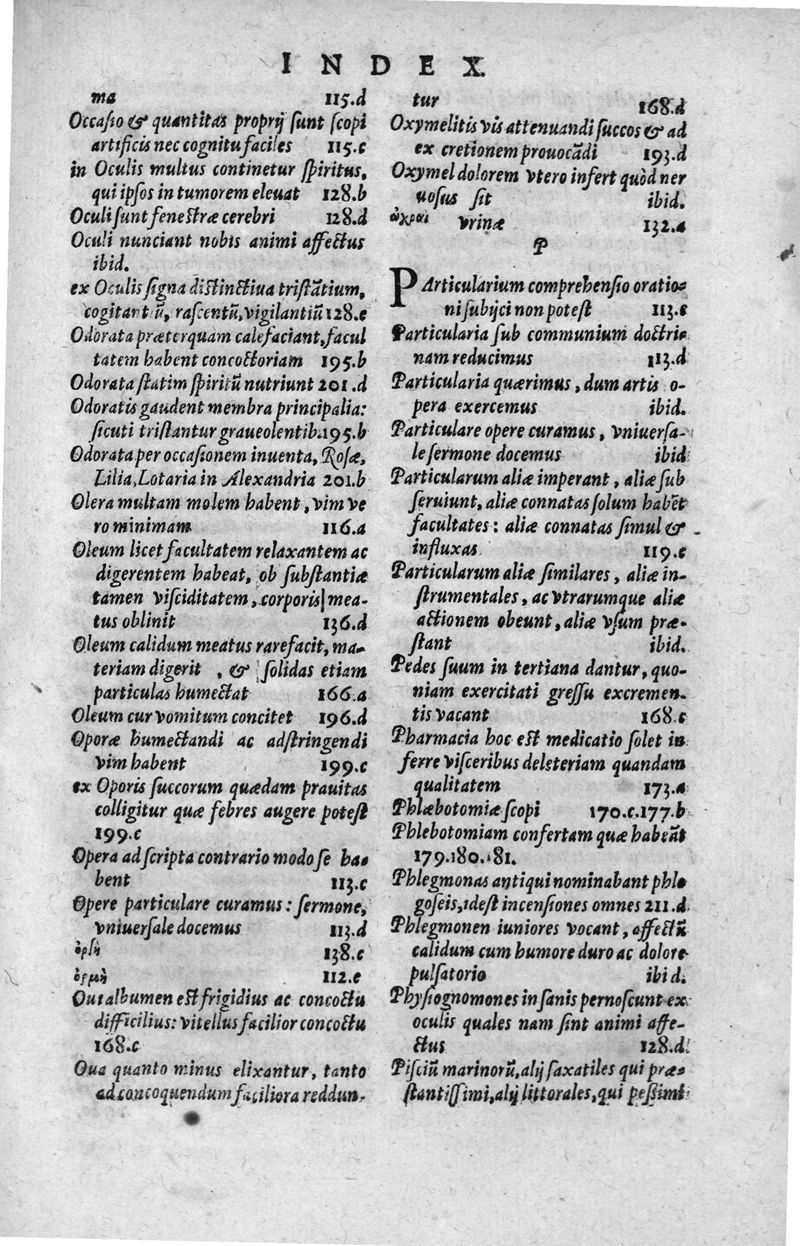 INDEX
ma 115.d
Occasio & quantitas proprij sunt scopi
artificis nec cognitu faciles 115.c
in Oculis multus continetur spiritus,
qui ipsos in tumorem eleuat 128.b
Oculi sunt fenestræ cerebri 128.d
Oculi nunciant nobis animi affectus
ibid.
ex Oculis signa distinctiua tristātium,
cogitantiū, rascentū, vigilantiū 128.e
Odorata præterquam calefaciant, facul
tatem habent concoctoriam 195.b
Odorata statim spiritū nutriunt 201.d
Odoratis gaudent membra principalia:
sicuti tristantur graueolentib. 195.b
Odorata per occasionem inuenta, Rosæ,
Lilia, Lotaria in Alexandria 201.b
Olera multam molem habent, vim ve
ro minimam 116.a
Oleum licet facultatem relaxantem ac
digerentem habeat, ob substantiæ
tamen visciditatem, corporis mea-
tus oblinit 136.d
Oleum calidum meatus rarefacit, ma-
teriam digerit, & solidas etiam
particulas humectat 166.a
Oleum cur vomitum concitet 196.d
Oporæ humectandi ac adstringendi
vim habent 199.c
ex Oporis succorum quædam prauitas
colligitur quæ febres augere potest
199.c
Opera adscripta contrario modo se ha-
bent 113.c
Opere particulare curamus: sermone,
vniuersale docemus 113.d
ὀρσὴ 138.c
ὁρμὴ 112.e
Oui albumen est frigidius ac concoctu
difficilius: vitellus facilior concoctu
168.c
Oua quanto minus elixantur, tanto
ad concoquendum faciliora reddun-
tur 168.d
Oxymelitis vis attenuandi succos & ad
ex cretionem prouocādi 193.d
Oxymel dolorem vtero infert quòd ner
uosus sit ibid.
ὠχραὶ vrinæ 132.a
P
PArticularium comprehensio oratio-
ni subijci non potest 113.c
Particularia sub communium doctri-
nam reducimus 113.d
Particularia quærimus, dum artis o-
pera exercemus ibid.
Particulare opere curamus, vniuersa-
le sermone docemus ibid
Particularum aliæ imperant, aliæ sub
seruiunt, aliæ connatas solum habēt
facultates: aliæ connatas simul &
influxas 119.c
Particularum aliæ similares, aliæ in-
strumentales, ac vtrarumque aliæ
actionem obeunt, aliæ vsum præ-
stant ibid.
Pedes suum in tertiana dantur, quo-
niam exercitati gressu excremen-
tis vacant 168.c
Pharmacia hoc est medicatio solet in
ferre visceribus deleteriam quandam
qualitatem 173.a
Phlæbotomiæ scopi 170.c.177.b
Phlebotomiam confertam quæ habeāt
179.180.181.
Phlegmonas antiqui nominabant phlo
goseis, idest incensiones omnes 211.d
Phlegmonen iuniores vocant, affectū
calidum cum humore duro ac dolore
pulsatorio ibid.
Physiognomones in sanis pernoscunt ex
oculis quales nam sint animi affe-
ctus 128.d.
Pisciū marinorū, alij saxatiles qui præ-
stantissimi, alij littorales, qui pessimi